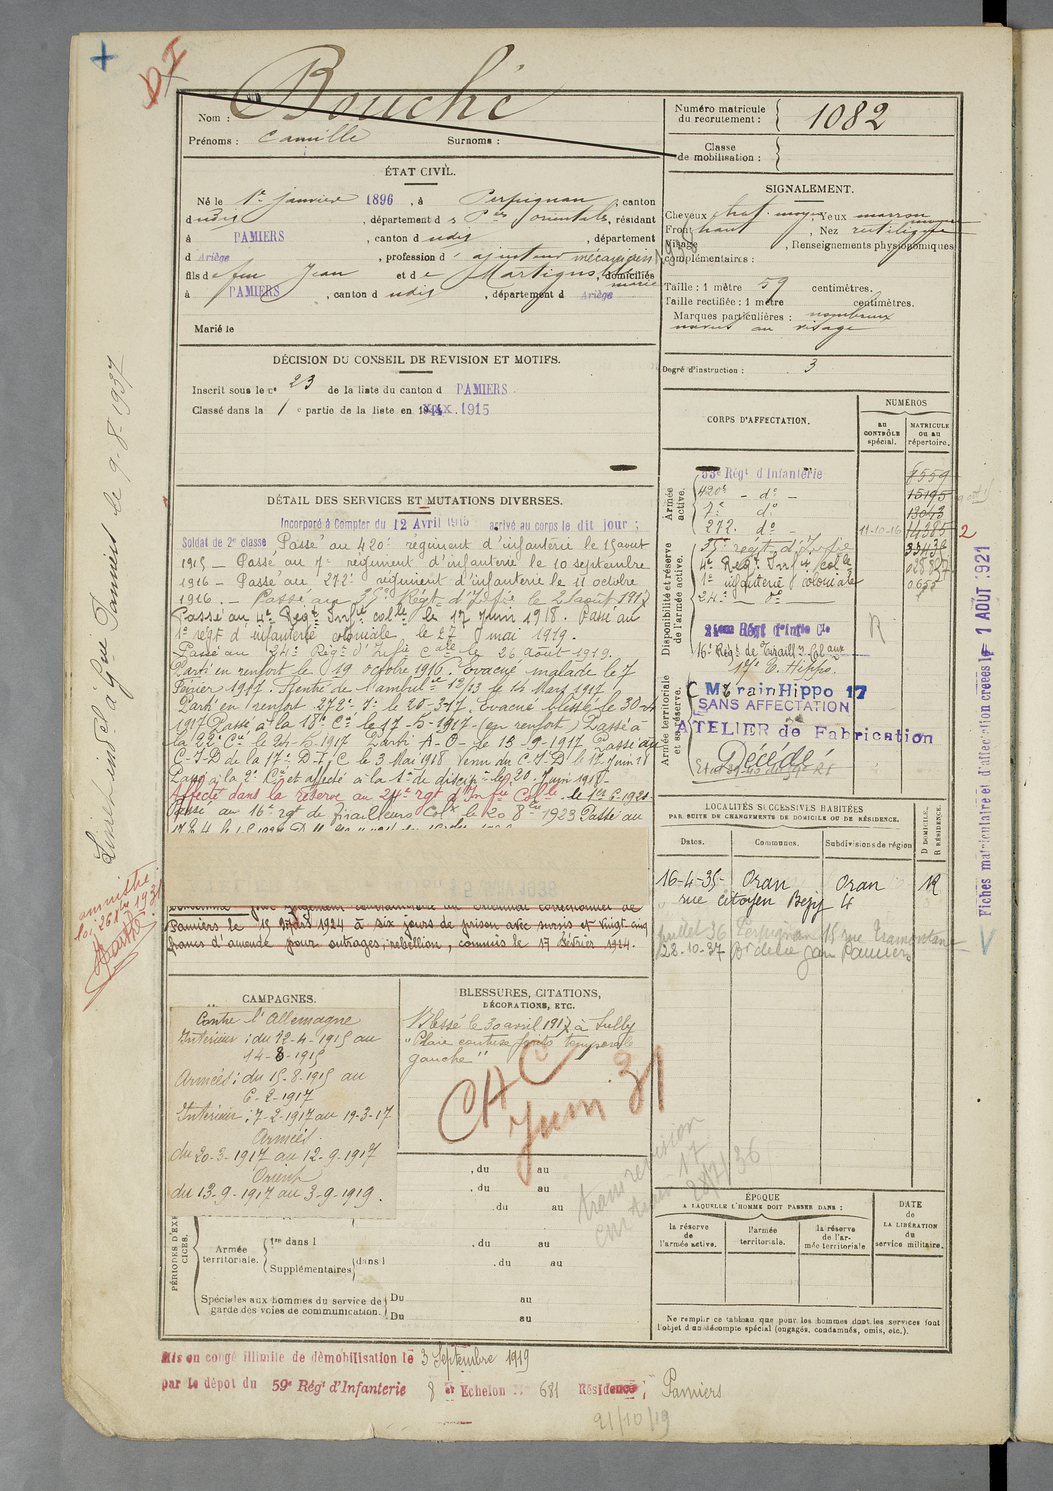 Nom : Bouché
Prénoms : Camille Surnoms :
Numéro matricule du recrutement : 1082
Classe de mobilisation :
ÉTAT CIVIL.
Né le 1er janvier 1896, à Perpignan, canton
dudis, département des Pées orientales, résidant
à PAMIERS, canton dudis, département
d Ariège, profession d'ajusteur mécanicien
fils de feu Jean et de Martignols Marie, domiciliés
à PAMIERS, canton dudis, département d Ariège
Marié le
SIGNALEMENT.
Cheveux chat. moyen, Yeux marron
Front haut, Nez rectiligne
Visage, Renseignements physionomiques
complémentaires :
Taille : 1 mètre 59 centimètres.
Taille rectifiée : 1 mètre centimètres.
Marques particulières : nombreux
naevus au visage
Degré d'instruction : 3
DÉCISION DU CONSEIL DE REVISION ET MOTIFS.
Inscrit sous le n° 23 de la liste du canton d PAMIERS
Classé dans la 1e partie de la liste en 1915
CORPS D'AFFECTATION.
NUMÉROS
au CONTRÔLE spécial.
MATRICULE OU AU répertoire.
Armée active.
Régt d'Infanterie 8559
420e - do - 15195
7e do 13043
272. do 11-10-16 14385 2
Disponibilité et réserve de l'armée active.
35e régt d'Infie
4e Régt Infie colle
1e infanterie coloniale
24e do
24eme Régt d'Infie Cle
16e Régt de Tiraill.s Colaux
17e E. Hippo.
Armée territoriale et sa réserve.
Mt rain Hippo 17
SANS AFFECTATION
ATELIER de Fabrication
Décédé
DÉTAIL DES SERVICES ET MUTATIONS DIVERSES.
Incorporé à Compter du 12 Avril 1915 arrivé au corps le dit jour ;
Soldat de 2e classe Passé au 420e régiment d'infanterie le 15 août
1915 - Passé au 7e régiment d'infanterie le 10 septembre
1916 - Passé au 272e régiment d'infanterie le 11 octobre
1916. - Passé au 35e Régt d'Infie le 21 août 1917
Passé au 4e Régt Infie colle le 17 Juin 1918. Passé au
1e régt d'infanterie coloniale le 27 mai 1919.
Passé au 24e Régt d'Infie Cale le 26 août 1919.
Parti en renfort le 19 octobre 1916. Evacué malade le 7
Février 1917. Rentré de l'ambulce 12/13 le 14 Mars 1917
Parti en renfort 272e I. le 20-3-17. Evacué blessé le 30-4
1917 Passé à la 18e Cie le 17-5-1917 (en renfort) Passé à
la 22e Cie le 24-5-1917 Parti A-O- le 13-9-1917 Passé au
C-I-D de la 17e D-I-C le 3 Mai 1918 Venu du C-I-D le 17 Juin 18
Passé à la 2e Cie et affecté à la de discip. le 20 Juin 1918-
Affecté dans la réserve au 24e rgt d'Infie Colle le 1er 6-1921-
Passé au 16e rgt de Tirailleurs Col. le 20 8bre 1923 Passé au
Pamiers le 15 Mars 1924 à six jours de prison avec sursis et vingt-cinq
francs d'amende pour outrages, rébellion, commis le 17 Février 1924.
LOCALITÉS SUCCESSIVES HABITÉES
PAR SUITE DE CHANGEMENTS DE DOMICILE OU DE RÉSIDENCE.
Dates. Communes. Subdivisions de région D DOMICILE. R RÉSIDENCE.
16-4-35- Oran Oran R
rue Citoyen Bézy 4
Juillet 36 Perpignan 15 rue Tramontane
22-10-37 Pamiers
CAMPAGNES.
Contre l'Allemagne
Intérieur : du 12-4-1915 au
14-8-1915
Armées : du 15-8-1915 au
6-2-1917
Intérieur : 7-2-1917 au 19-3-17
Armées
du 20-3-1917 au 12-9-1917
Orient
du 13-9-1917 au 3-9-1919.
BLESSURES, CITATIONS,
DÉCORATIONS, ETC.
Blessé le 30 avril 1917 à Sully
"Plaie contuse front temporale
gauche"
CAC
Juin 31
, du au
, du au
, du au
PÉRIODES D'EXERCICES.
Armée territoriale. 1re dans l , du au
Supplémentaires dans l , du au
Spéciales aux hommes du service de garde des voies de communication. Du au
Du au
ÉPOQUE
A LAQUELLE L'HOMME DOIT PASSER DANS :
la réserve de l'armée active.
l'armée territoriale.
la réserve de l'armée territoriale
DATE de LA LIBÉRATION du service militaire.
Ne remplir ce tableau que pour les hommes dont les services font
l'objet d'un décompte spécial (engagés, condamnés, omis, etc.).
Mis en congé illimité de démobilisation le 3 Septembre 1919
par le dépôt du 59e Régt d'Infanterie 8 er Echelon N° 681 Résidence : Pamiers
21/10/19
amnistié
Fiches matriculaire et d'affectation créées le 1 AOUT 1921